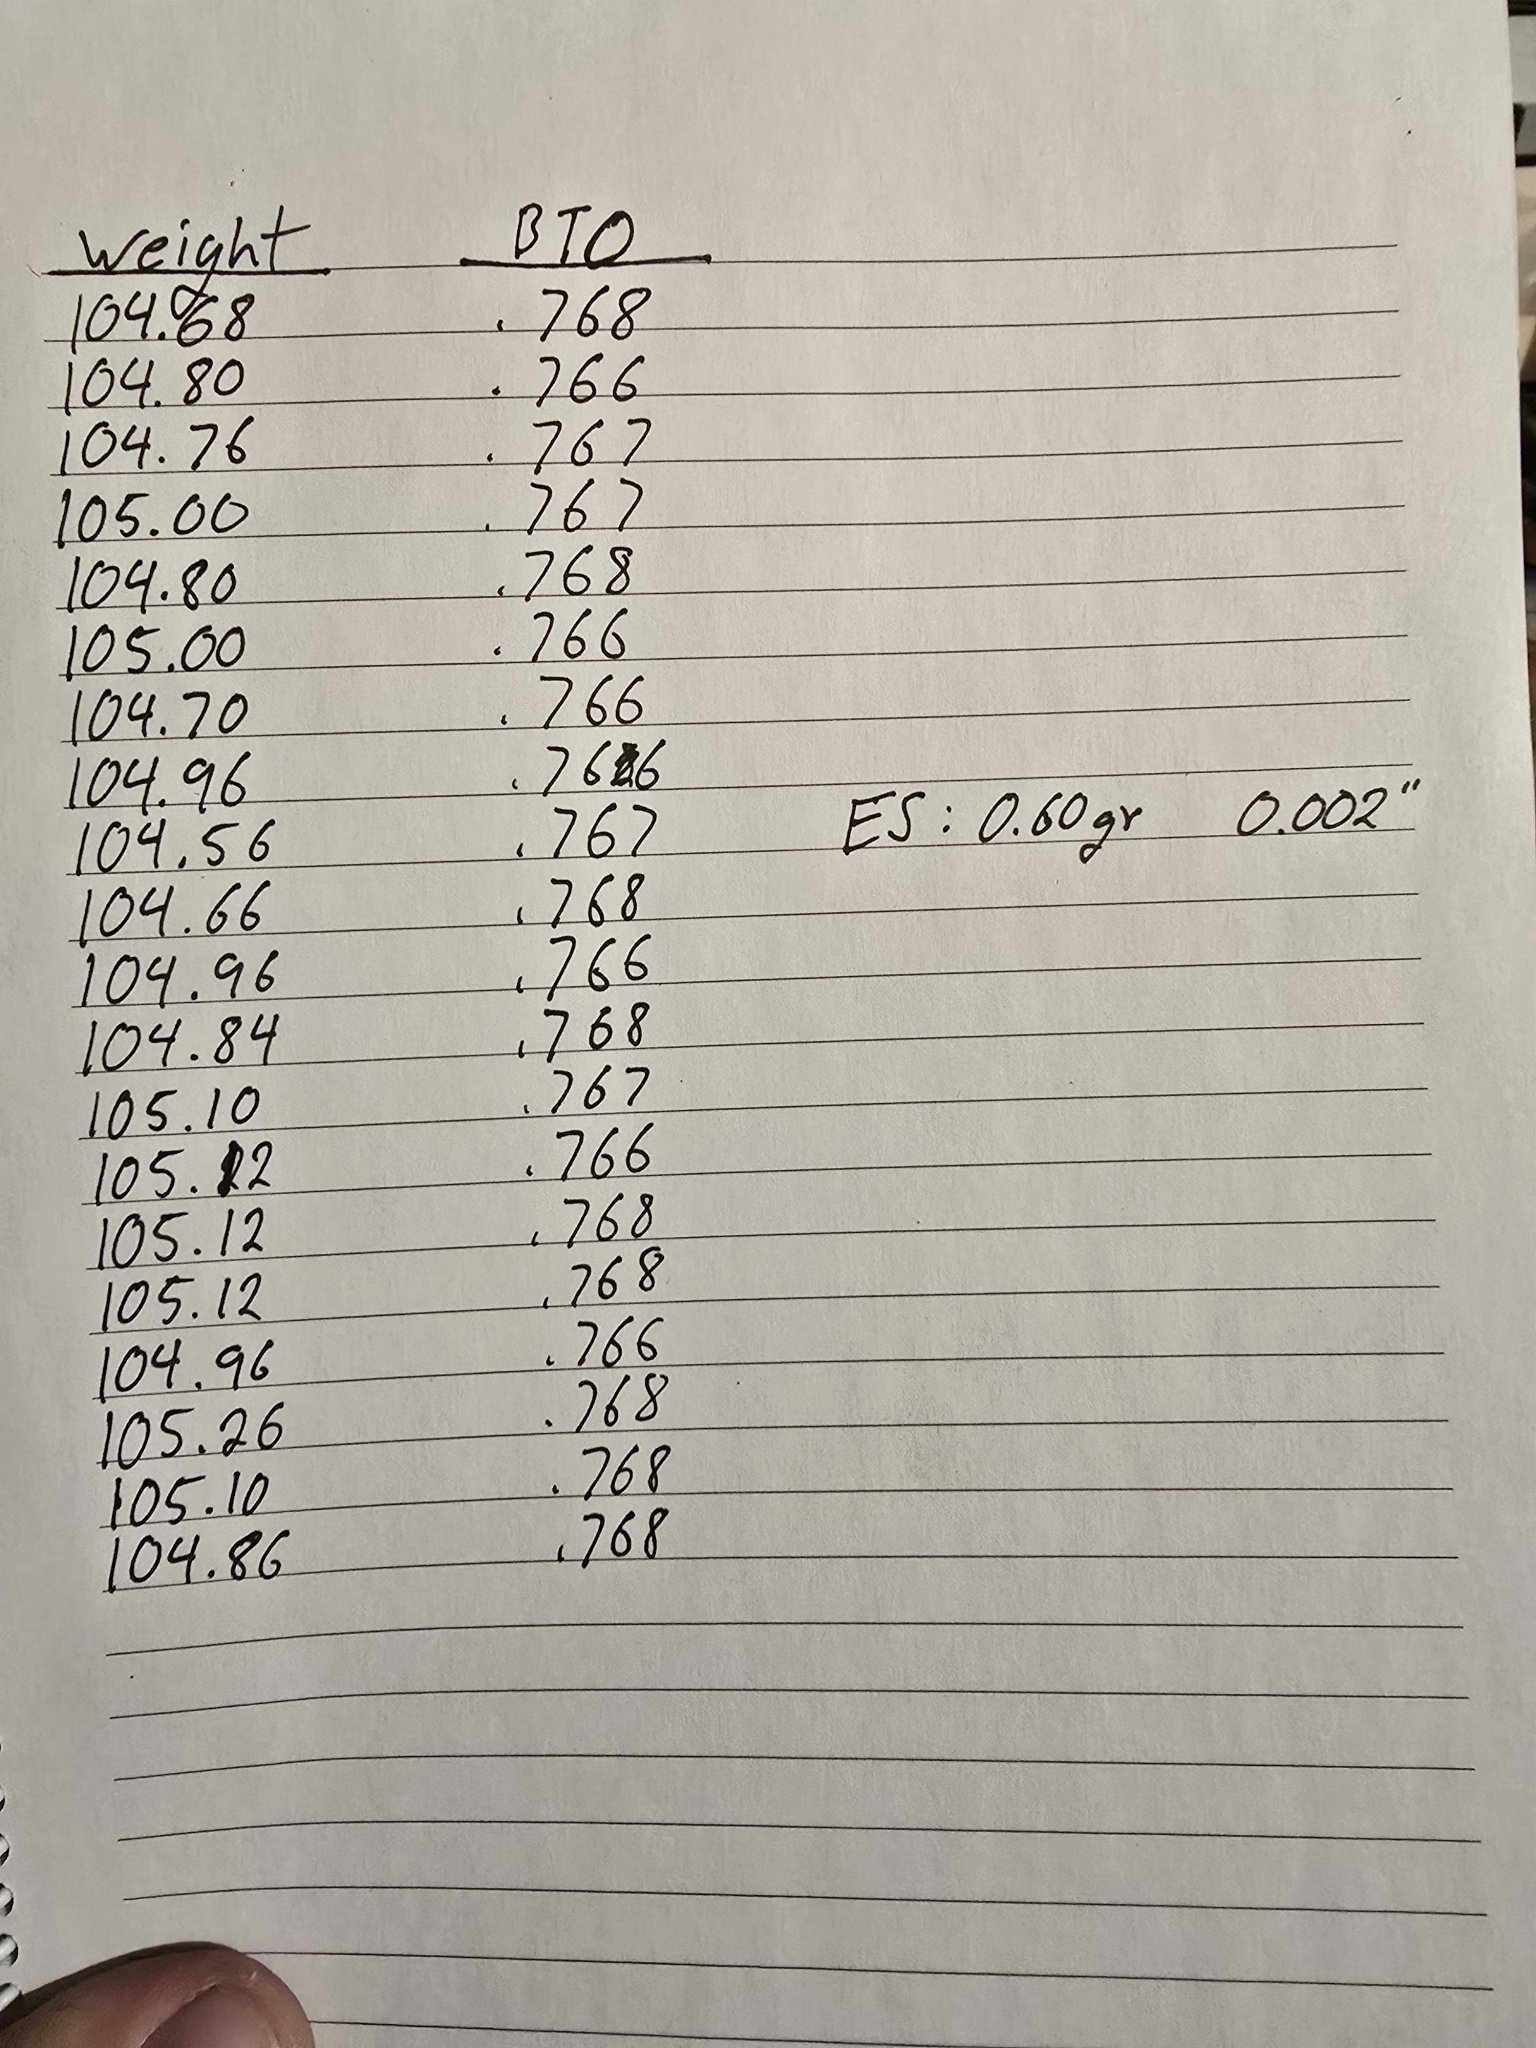 weight BTO
104.68 .768
104.80 .766
104.76 .767
105.00 .767
104.80 .768
105.00 .766
104.70 .766
104.96 .766
104.56 .767 ES: 0.60gr 0.002"
104.66 .768
104.96 .766
104.84 .768
105.10 .767
105.12 .766
105.12 .768
105.12 .768
104.96 .766
105.26 .768
105.10 .768
104.86 .768